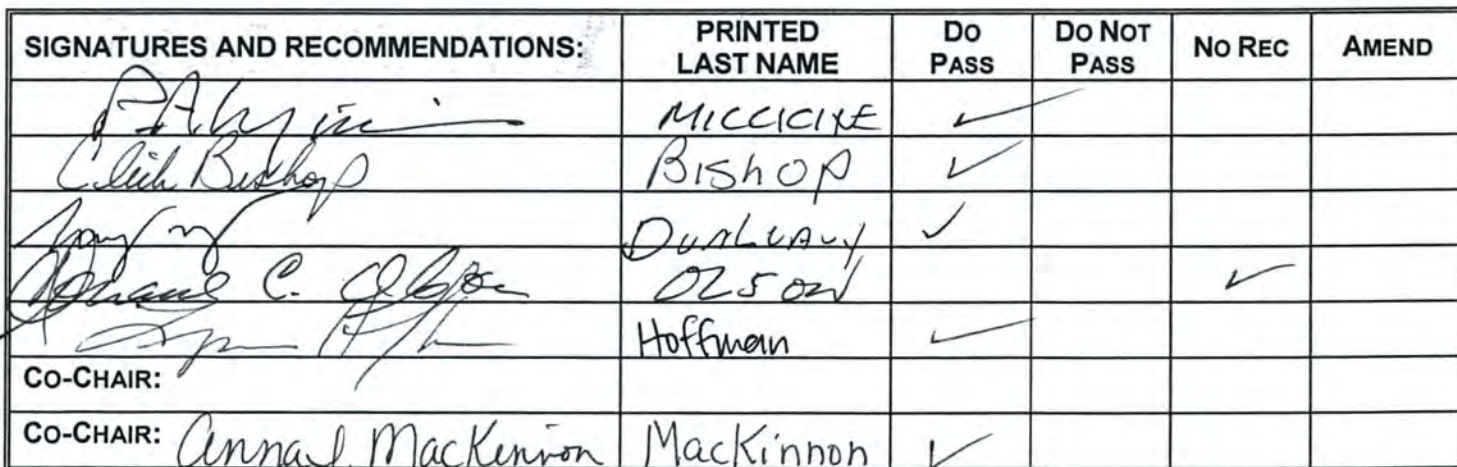 SIGNATURES AND RECOMMENDATIONS: PRINTED LAST NAME DO PASS DO NOT PASS NO REC AMEND
MICCICIXE ✓
Click Bishop BISHOP ✓
DUNLEAVY ✓
C. Olson OLSON ✓
Hoffman ✓
CO-CHAIR:
CO-CHAIR: Anna I. MacKinnon MacKinnon ✓